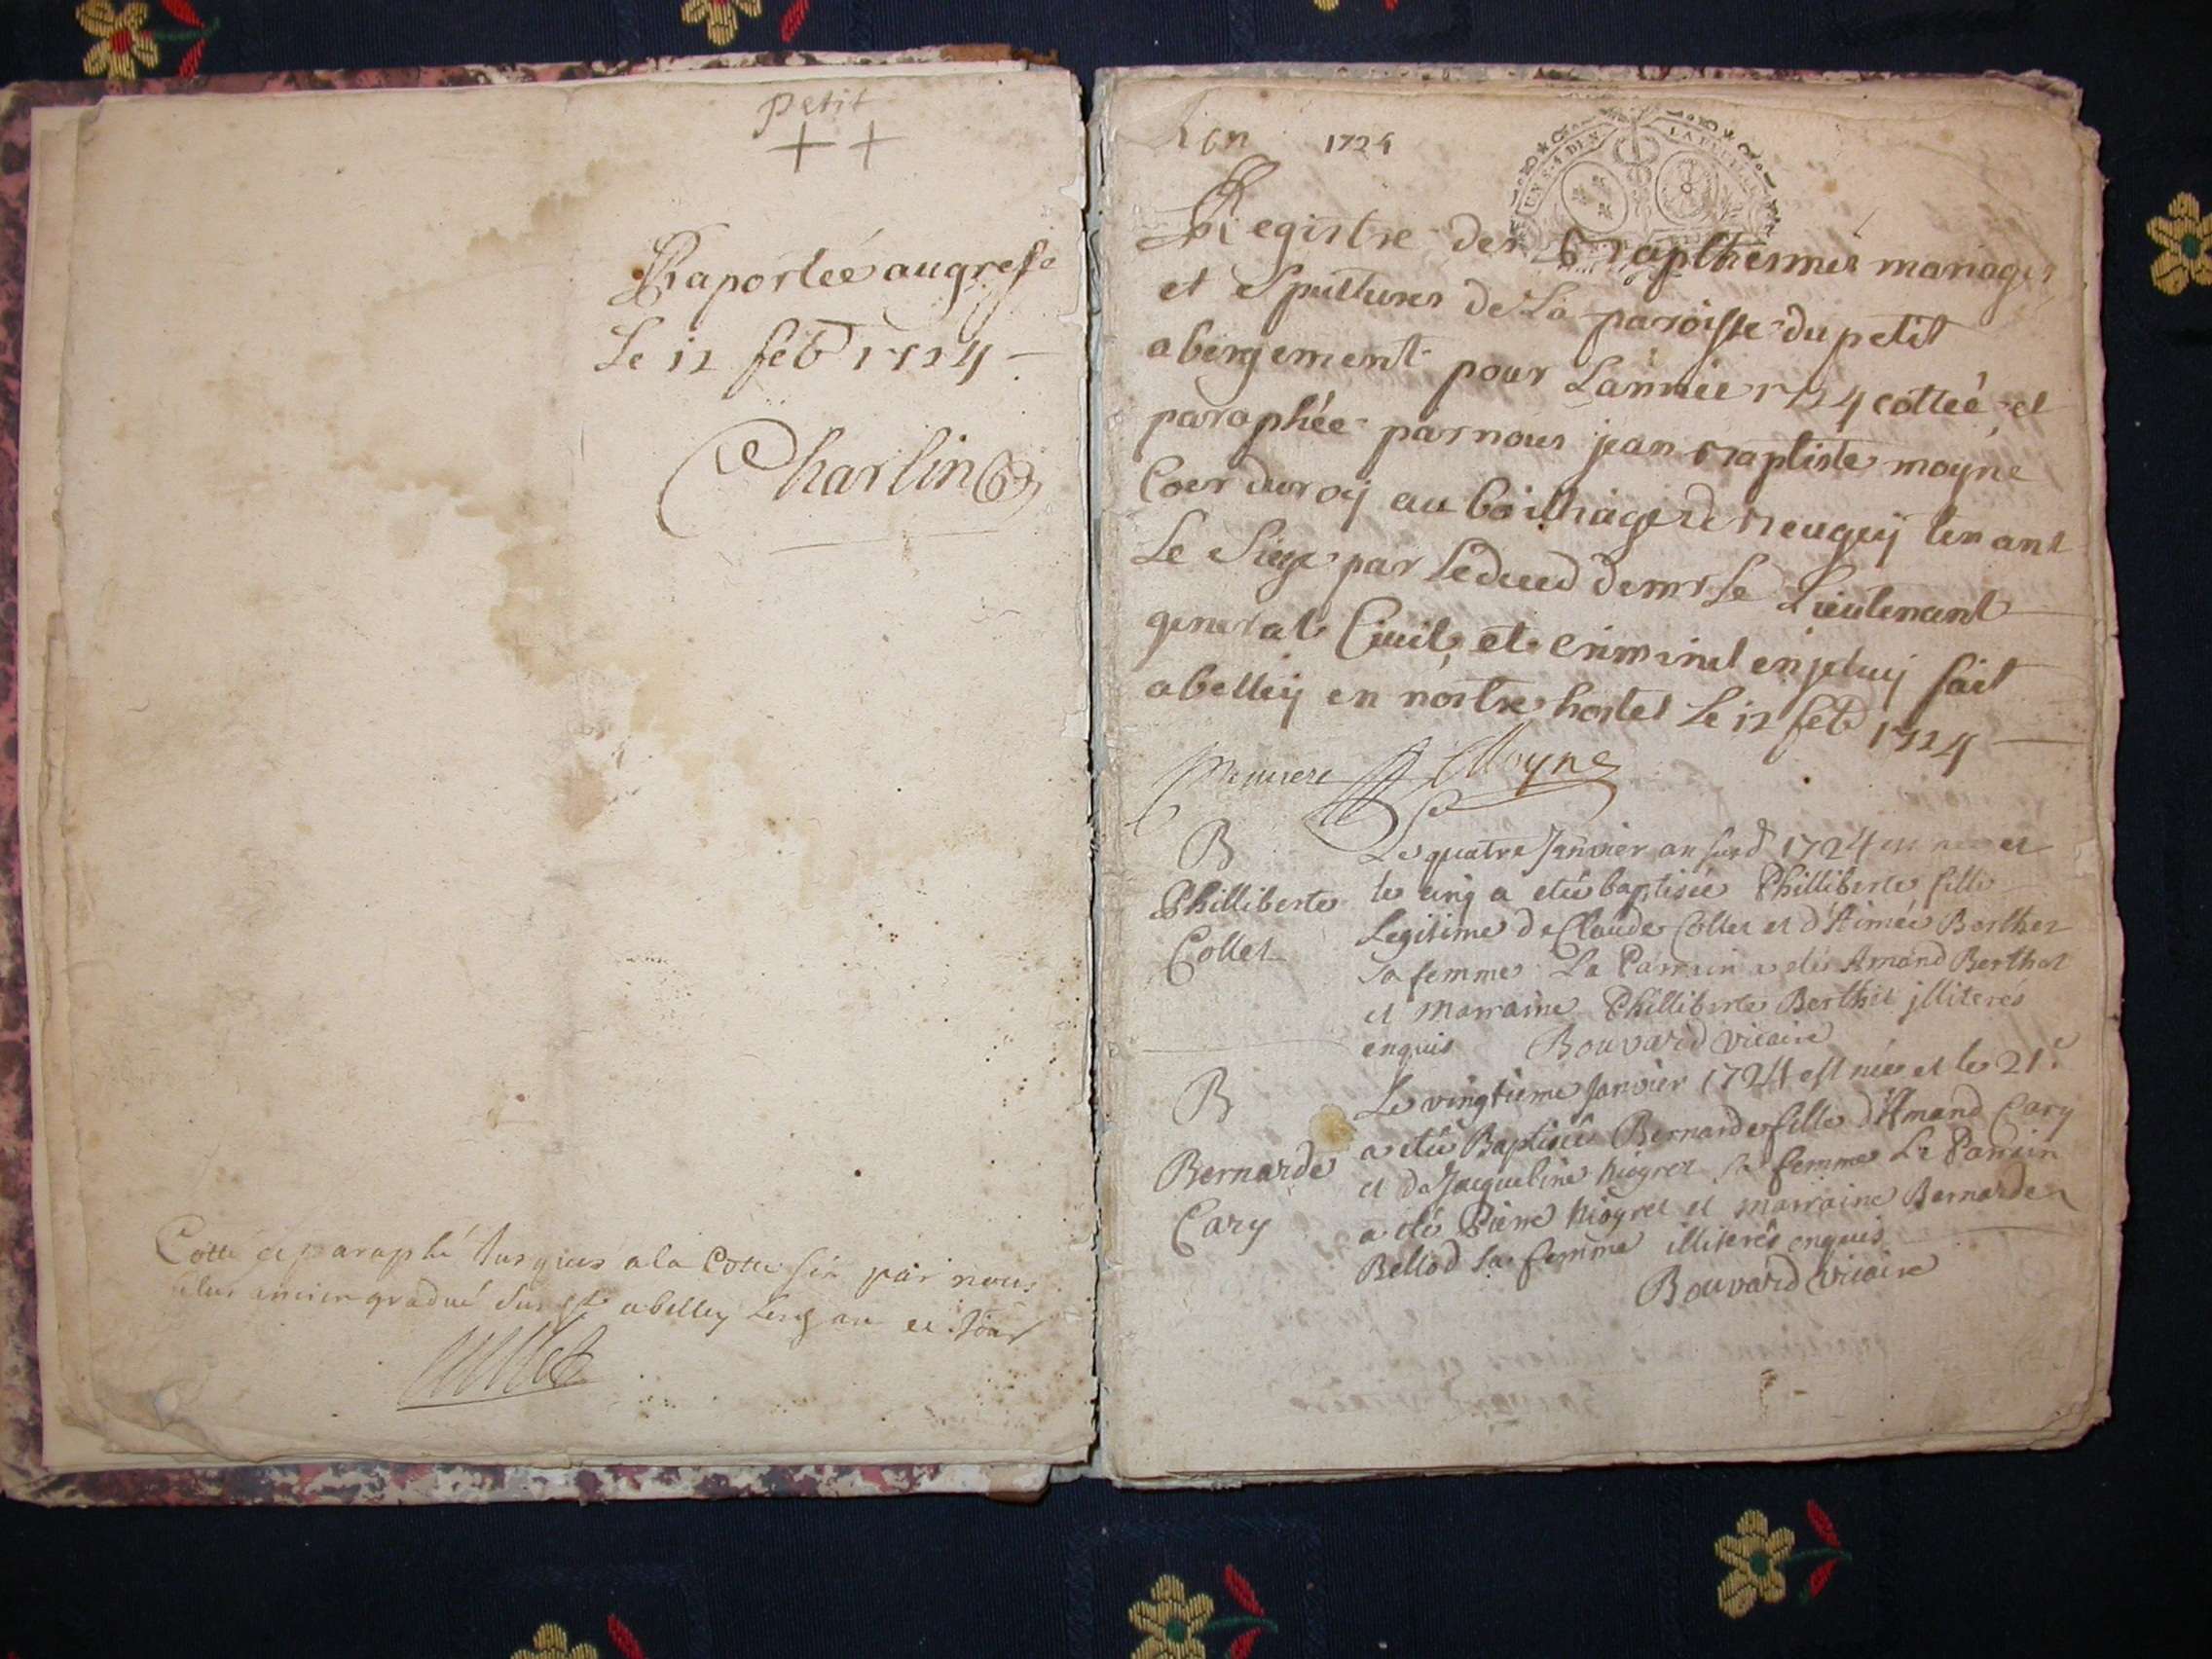 petit
Raportée au grefe
Le 12 feb 1724
Charlin
Cotté et paraphé jusques a la Cotte six par nous
plus ancien gradué abelley an et jour
1724
Registre des Bapthesmes mariages
et Spultures de La paroisse du petit
abergement pour Lannée 1724 cottée et
paraphée par nous jean Baptiste moyne
Coer du roy au bailliage de Beugey tenant
Le Siege par Led deced de mr Le Lieutenant
general Ciuil et criminel en jeluy fait
abelley en nostre hostel Le 12 feb 1724
premiere Moyne
B
Philliberte
Collet
Le quatre Janvier an susd 1724 est née et
le cinq a etée baptisée Philliberte fille
Legitime de Claude Collet et d'Aimée Berthet
sa femme Le Parrain a été Amand Berthet
et Marraine Philliberte Berthet jlliterés
enquis Bouvard vicaire
B
Bernarde
Cary
Le vingtieme Janvier 1724 est née et le 21e
a etée Baptisée Bernarde fille d'Amand Cary
et de Jacqueline Niogret sa femme Le Parrain
a été Pierre Niogret et marraine Bernarde
Bellod sa femme illiterés enquis
Bouvard vicaire